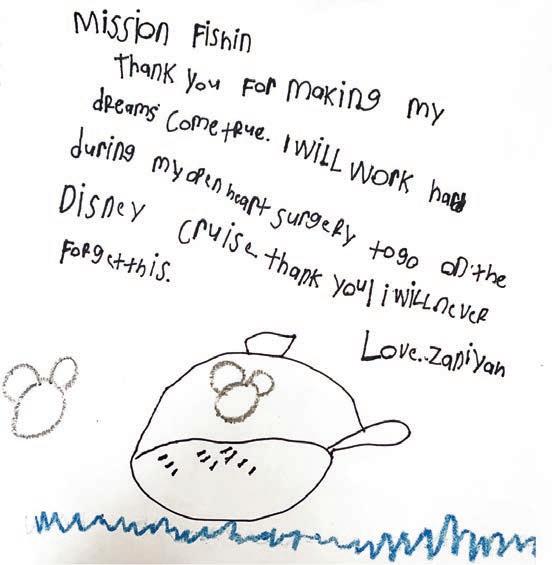 Mission Fishin
Thank you For making my
dreams come true. I WILL WORK hard
during my open heart surgery to go on the
Disney cruise thank you! i will never
Forget this.
Love.. Zaniyah